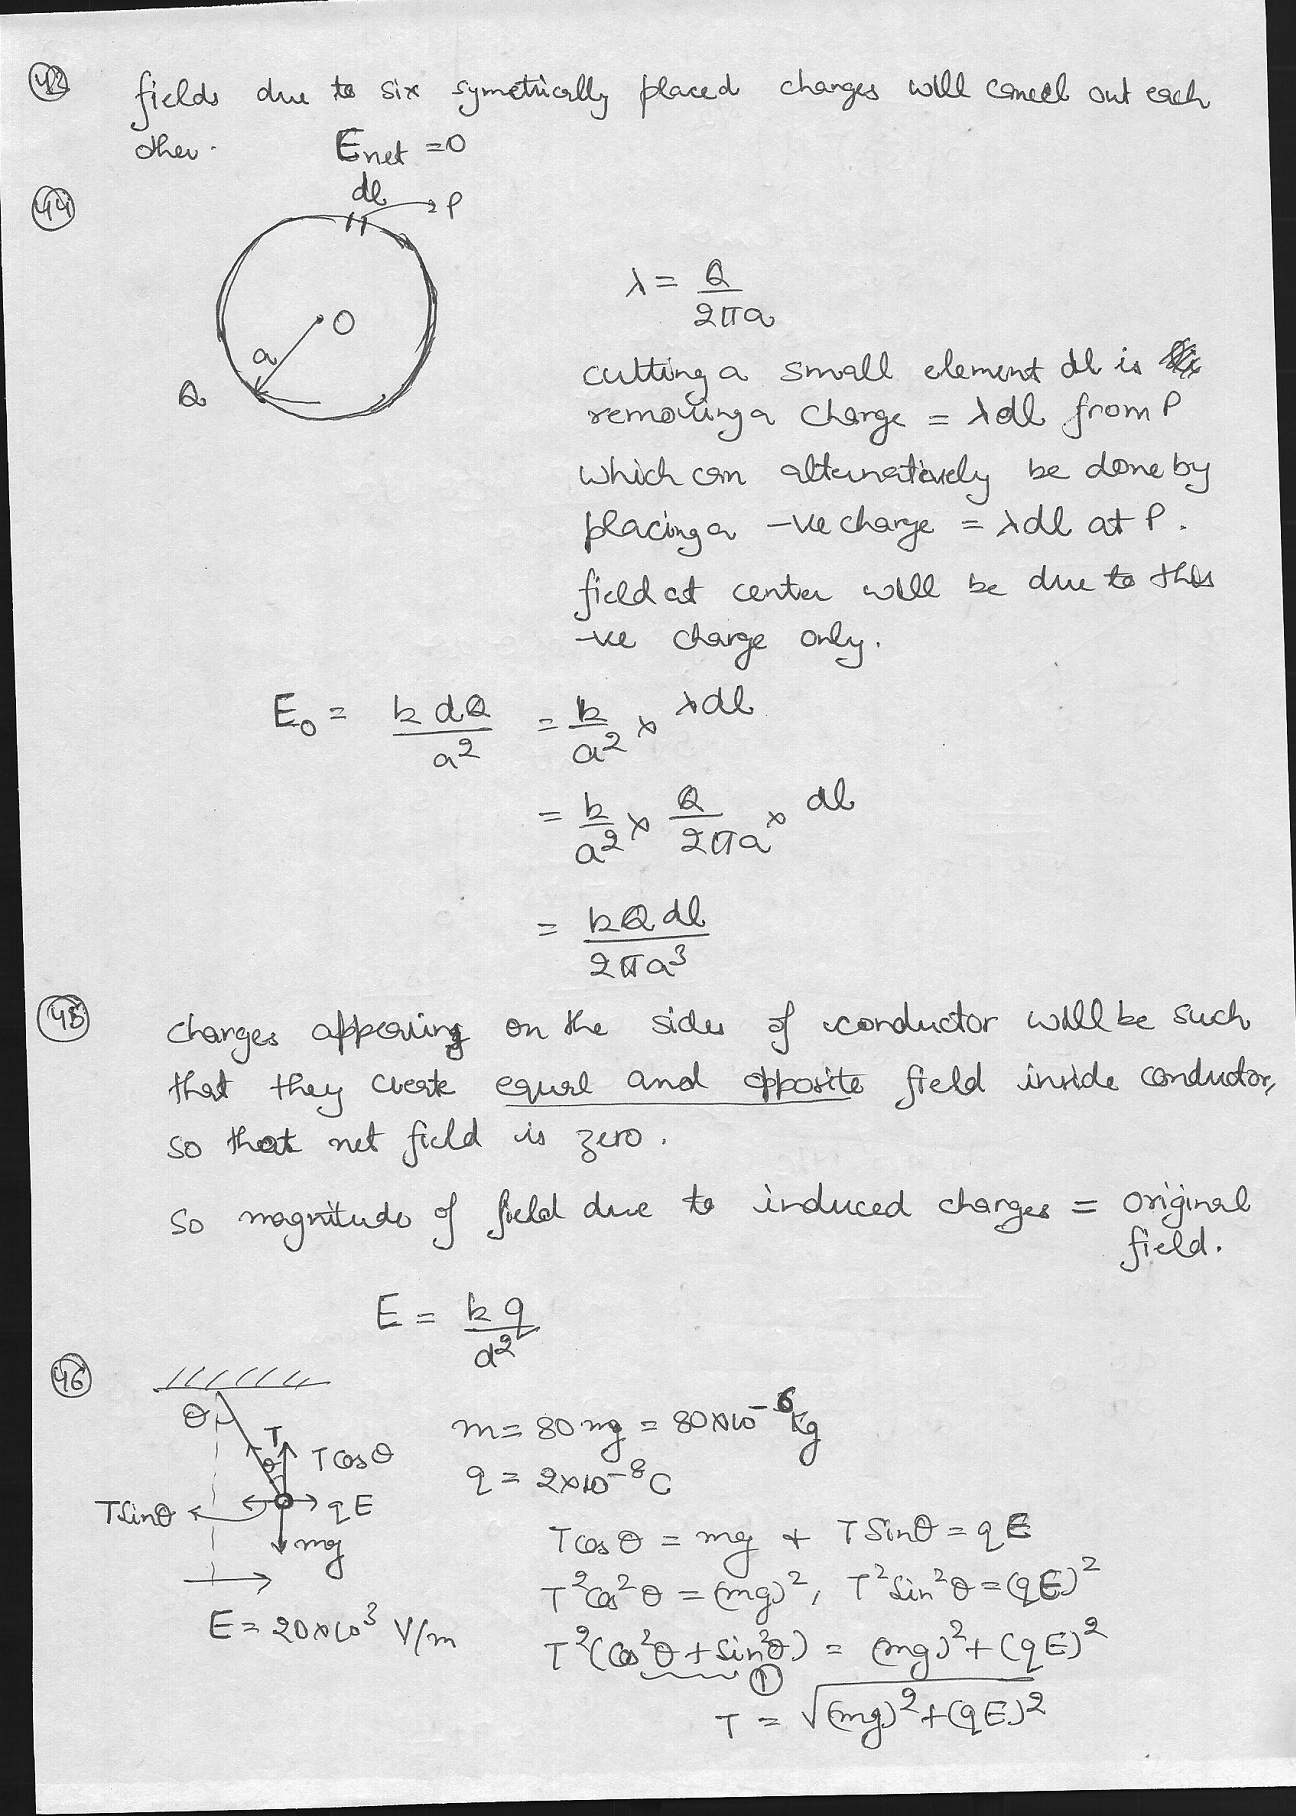 43 fields due to six symetrically placed charges will cancel out each
other. Enet = 0
44
dl
P
O
a
Q
λ = Q / 2πa
cutting a small element dl is
removing a charge = λdl from P
which can alternatively be done by
placing a -ve charge = λdl at P.
field at center will be due to this
-ve charge only.
E₀ = k dQ / a² = k / a² × λdl
= k / a² × Q / 2πa × dl
= kQ dl / 2πa³
45 charges appearing on the sides of conductor will be such
that they create equal and opposite field inside conductor,
so that net field is zero.
So magnitude of field due to induced charges = original
field.
E = kq / d²
46
θ
T
θ
T cos θ
T sin θ
qE
mg
E = 20×10³ V/m
m = 80 mg = 80×10⁻⁶ kg
q = 2×10⁻⁸ C
T cos θ = mg + T sin θ = qE
T² cos² θ = (mg)², T² sin² θ = (qE)²
T² (cos² θ + sin² θ) = (mg)² + (qE)²
1
T = √(mg)² + (qE)²